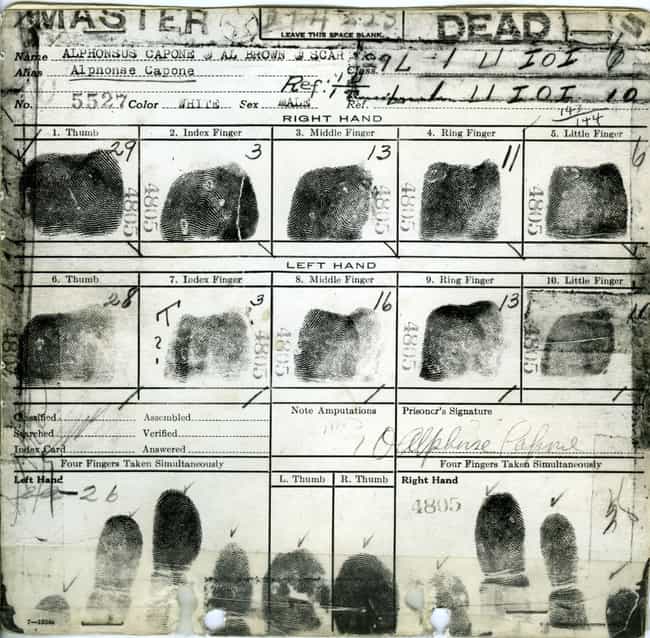 MASTER DEAD
LEAVE THIS SPACE BLANK.
Name ALPHONSUS CAPONE AL BROWN SCAR
Alias Alphonse Capone
Class. 29 L 1 U IOI 6
Ref:
U IOI 10
No. 5527 Color WHITE Sex MALE Ref.
142
144
RIGHT HAND
1. Thumb 2. Index Finger 3. Middle Finger 4. Ring Finger 5. Little Finger
29 3 13 11 6
4805 4805 4805 4805
LEFT HAND
6. Thumb 7. Index Finger 8. Middle Finger 9. Ring Finger 10. Little Finger
28 T ? 3 16 13
4805 4805 4805 4805
Classified Assembled
Searched Verified
Index Card Answered
Note Amputations
Prisoner's Signature
Alphonse Capone
Four Fingers Taken Simultaneously Four Fingers Taken Simultaneously
Left Hand L. Thumb R. Thumb Right Hand
26
4805